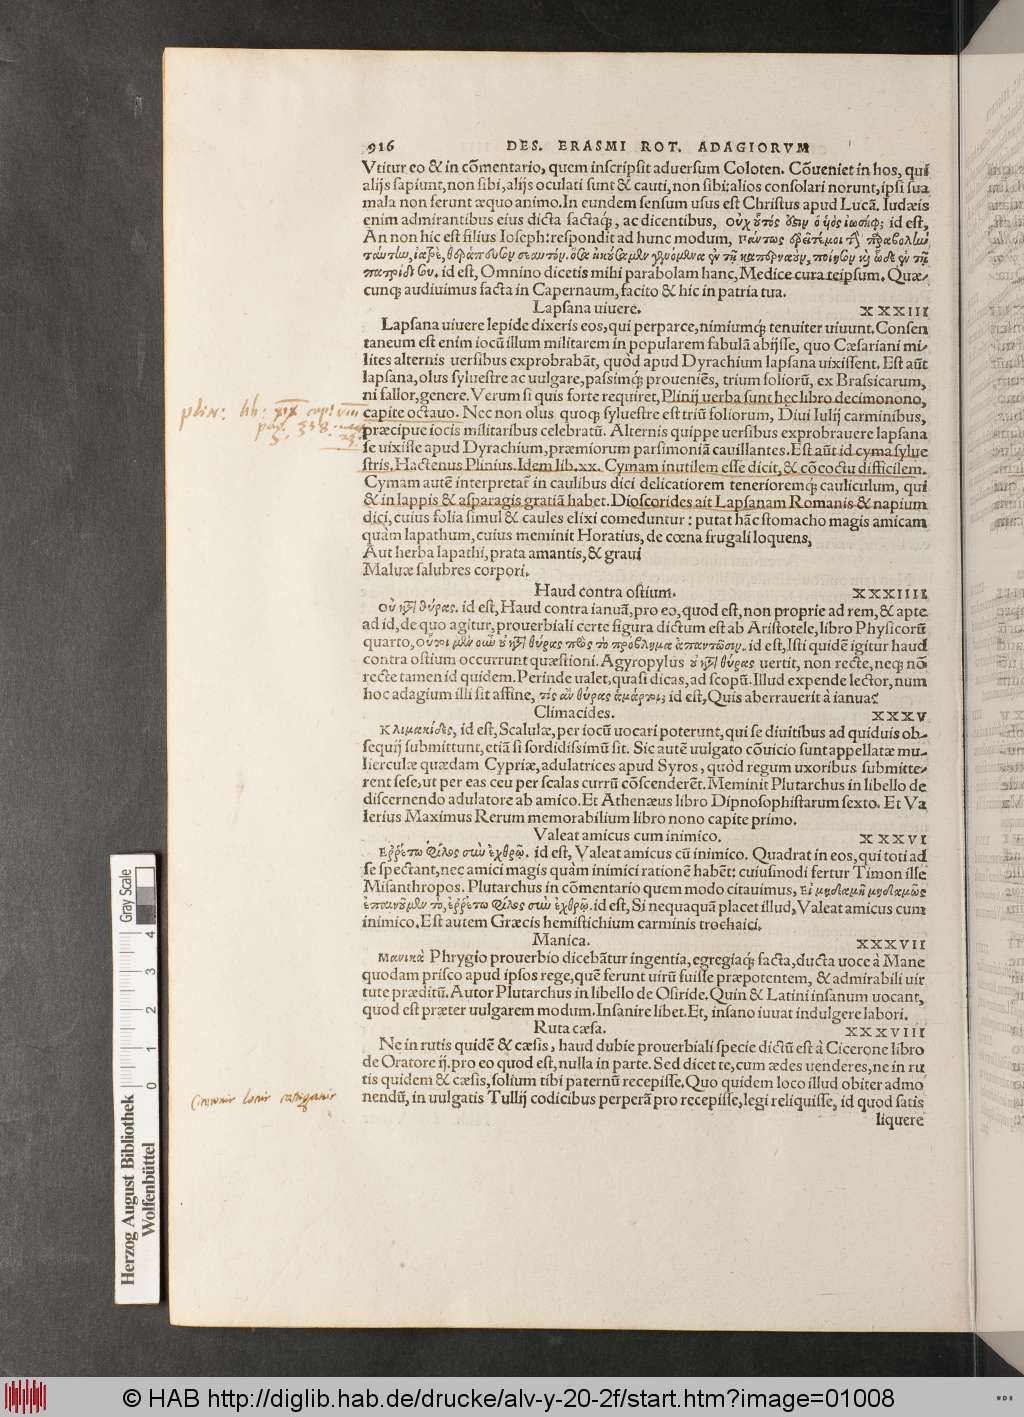 916 DES. ERASMI ROT. ADAGIORVM
Vtitur eo & in cõmentario, quem inscripsit aduersum Coloten. Cõueniet in hos, qui
alijs sapiunt, non sibi, alijs oculati sunt & cauti, non sibi: alios consolari norunt, ipsi sua
mala non ferunt æquo animo. In eundem sensum usus est Christus apud Lucã. Iudæis
enim admirantibus eius dicta factaq́;, ac dicentibus, οὐχ οὗτός ὅστιν ὁ ἡὸς ἰωσήφ; id est,
An non hic est filius Ioseph: respondit ad hunc modum, πάντως ἐρεῖτέ μοι τὴν παραβολὴν
ταύτην, ἰατρὲ, θεράπευσον σεαυτόν. ὅσα ἠκούσαμεν γενόμενα ἐν τῇ καπερναοὺμ, ποίησον καὶ ὧδε ἐν τῇ
πατρίδι σου. id est, Omnino dicetis mihi parabolam hanc, Medice cura teipsum. Quæ-
cunq; audiuimus facta in Capernaum, facito & hic in patria tua.
Lapsana uiuere. XXXIII
Lapsana uiuere lepide dixeris eos, qui perparce, nimiumq́; tenuiter uiuunt. Consen
taneum est enim iocũ illum militarem in popularem fabulã abijsse, quo Cæsariani mi-
lites alternis uersibus exprobrabãt, quòd apud Dyrachium lapsana uixissent. Est aũt
lapsana, olus syluestre ac uulgare, passimq́; proueniẽs, trium foliorũ, ex Brassicarum,
ni fallor, genere. Verum si quis forte requiret, Plinij uerba sunt hec libro decimonono,
plin: lib: xix cap: viii
capite octauo. Nec non olus quoq; syluestre est triũ foliorum, Diui Iulij carminibus,
pag. 338.
præcipue iocis militaribus celebratũ. Alternis quippe uersibus exprobrauere lapsana
se uixisse apud Dyrachium, præmiorum parsimoniã cauillantes. Est aũt id cyma sylue
stris. Hactenus Plinius. Idem lib. xx. Cymam inutilem esse dicit, & cõcoctu difficilem.
Cymam autẽ interpretat̃ in caulibus dici delicatiorem tenerioremq; cauliculum, qui
& in lappis & asparagis gratiã habet. Dioscorides ait Lapsanam Romanis & napium
dici, cuius folia simul & caules elixi comeduntur: putat hãc stomacho magis amicam
quàm lapathum, cuius meminit Horatius, de cœna frugali loquens,
Aut herba lapathi, prata amantis, & graui
Maluæ salubres corpori.
Haud contra ostium. XXXIIII
Οὐ κατὰ θύρας. id est, Haud contra ianuã, pro eo, quod est, non proprie ad rem, & apte
ad id, de quo agitur, prouerbiali certe figura dictum est ab Aristotele, libro Physicorũ
quarto, οὗτοι μὲν οὖν οὐ κατὰ θύρας πρὸς τὸ πρόβλημα ἀπαντῶσιν. id est, Isti quidẽ igitur haud
contra ostium occurrunt quæstioni. Agyropylus οὐ κατὰ θύρας uertit, non recte, neq; nõ
recte tamen id quidem. Perinde ualet, quasi dicas, ad scopũ. Illud expende lector, num
hoc adagium illi sit affine, τίς ἂν θύρας ἁμάρτοι; id est, Quis aberrauerit à ianua?
Climacides. XXXV
Κλιμακίδες, id est, Scalulæ, per iocũ uocari poterunt, qui se diuitibus ad quiduis ob-
sequij submittunt, etiã si sordidissimũ sit. Sic autẽ uulgato cõuicio sunt appellatæ mu-
lierculæ quædam Cypriæ, adulatrices apud Syros, quòd regum uxoribus submitte-
rent sese, ut per eas ceu per scalas currũ cõscenderẽt. Meminit Plutarchus in libello de
discernendo adulatore ab amico. Et Athenæus libro Dipnosophistarum sexto. Et Va
lerius Maximus Rerum memorabilium libro nono capite primo.
Valeat amicus cum inimico. XXXVI
Ἐρρέτω φίλος σὺν ἐχθρῷ. id est, Valeat amicus cũ inimico. Quadrat in eos, qui toti ad
se spectant, nec amici magis quàm inimici rationẽ habẽt: cuiusmodi fertur Timon ille
Misanthropos. Plutarchus in cõmentario quem modo citauimus, Εἰ μηδαμῆ μηδαμῶς
ἐπαινοῦμεν τὸ, ἐρρέτω φίλος σὺν ἐχθρῷ. id est, Si nequaquã placet illud, Valeat amicus cum
inimico. Est autem Græcis hemistichium carminis trochaici.
Manica. XXXVII
Μανικὰ Phrygio prouerbio dicebãtur ingentia, egregiaq́; facta, ducta uoce à Mane
quodam prisco apud ipsos rege, quẽ ferunt uirũ fuisse præpotentem, & admirabili uir
tute præditũ. Autor Plutarchus in libello de Osiride. Quin & Latini insanum uocant,
quod est præter uulgarem modum. Insanire libet. Et, insano iuuat indulgere labori.
Ruta cæsa. XXXVIII
Ne in rutis quidẽ & cæsis, haud dubie prouerbiali specie dictũ est à Cicerone libro
de Oratore ij. pro eo quod est, nulla in parte. Sed dicet te, cum ædes uenderes, ne in ru
tis quidem & cæsis, solium tibi paternũ recepisse, Quo quidem loco illud obiter admo
Ciceronis locus castigatur
nendũ, in uulgatis Tullij codicibus perperã pro recepisse, legi reliquisse, id quod satis
liquere
Gray Scale
4
3
2
1
0
Herzog August Bibliothek
Wolfenbüttel
© HAB http://diglib.hab.de/drucke/alv-y-20-2f/start.htm?image=01008